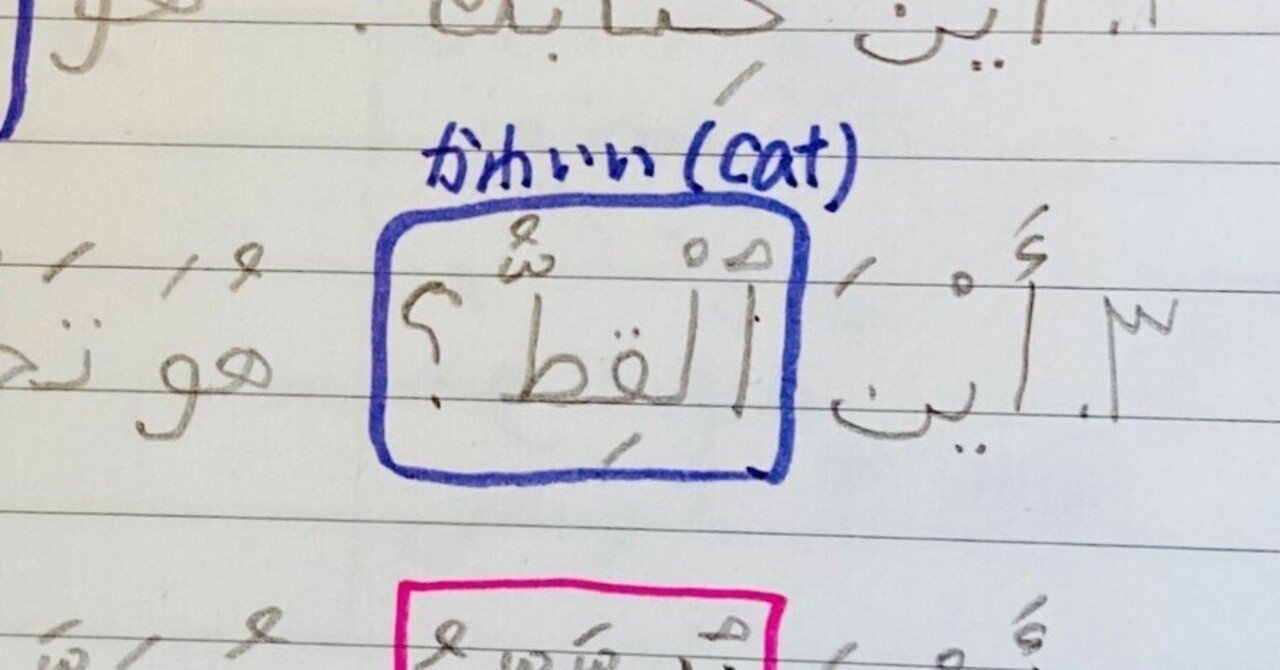 ١. أين كتابك. هو
かわいい (cat)
٣. أَيْنَ ٱلْقِطُّ؟ هُوَ تَحـ